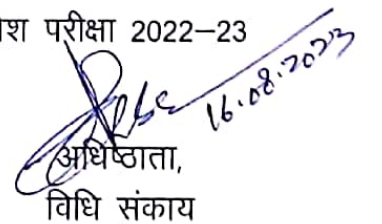 श परीक्षा 2022–23
16.08.2023
अधिष्ठाता,
विधि संकाय